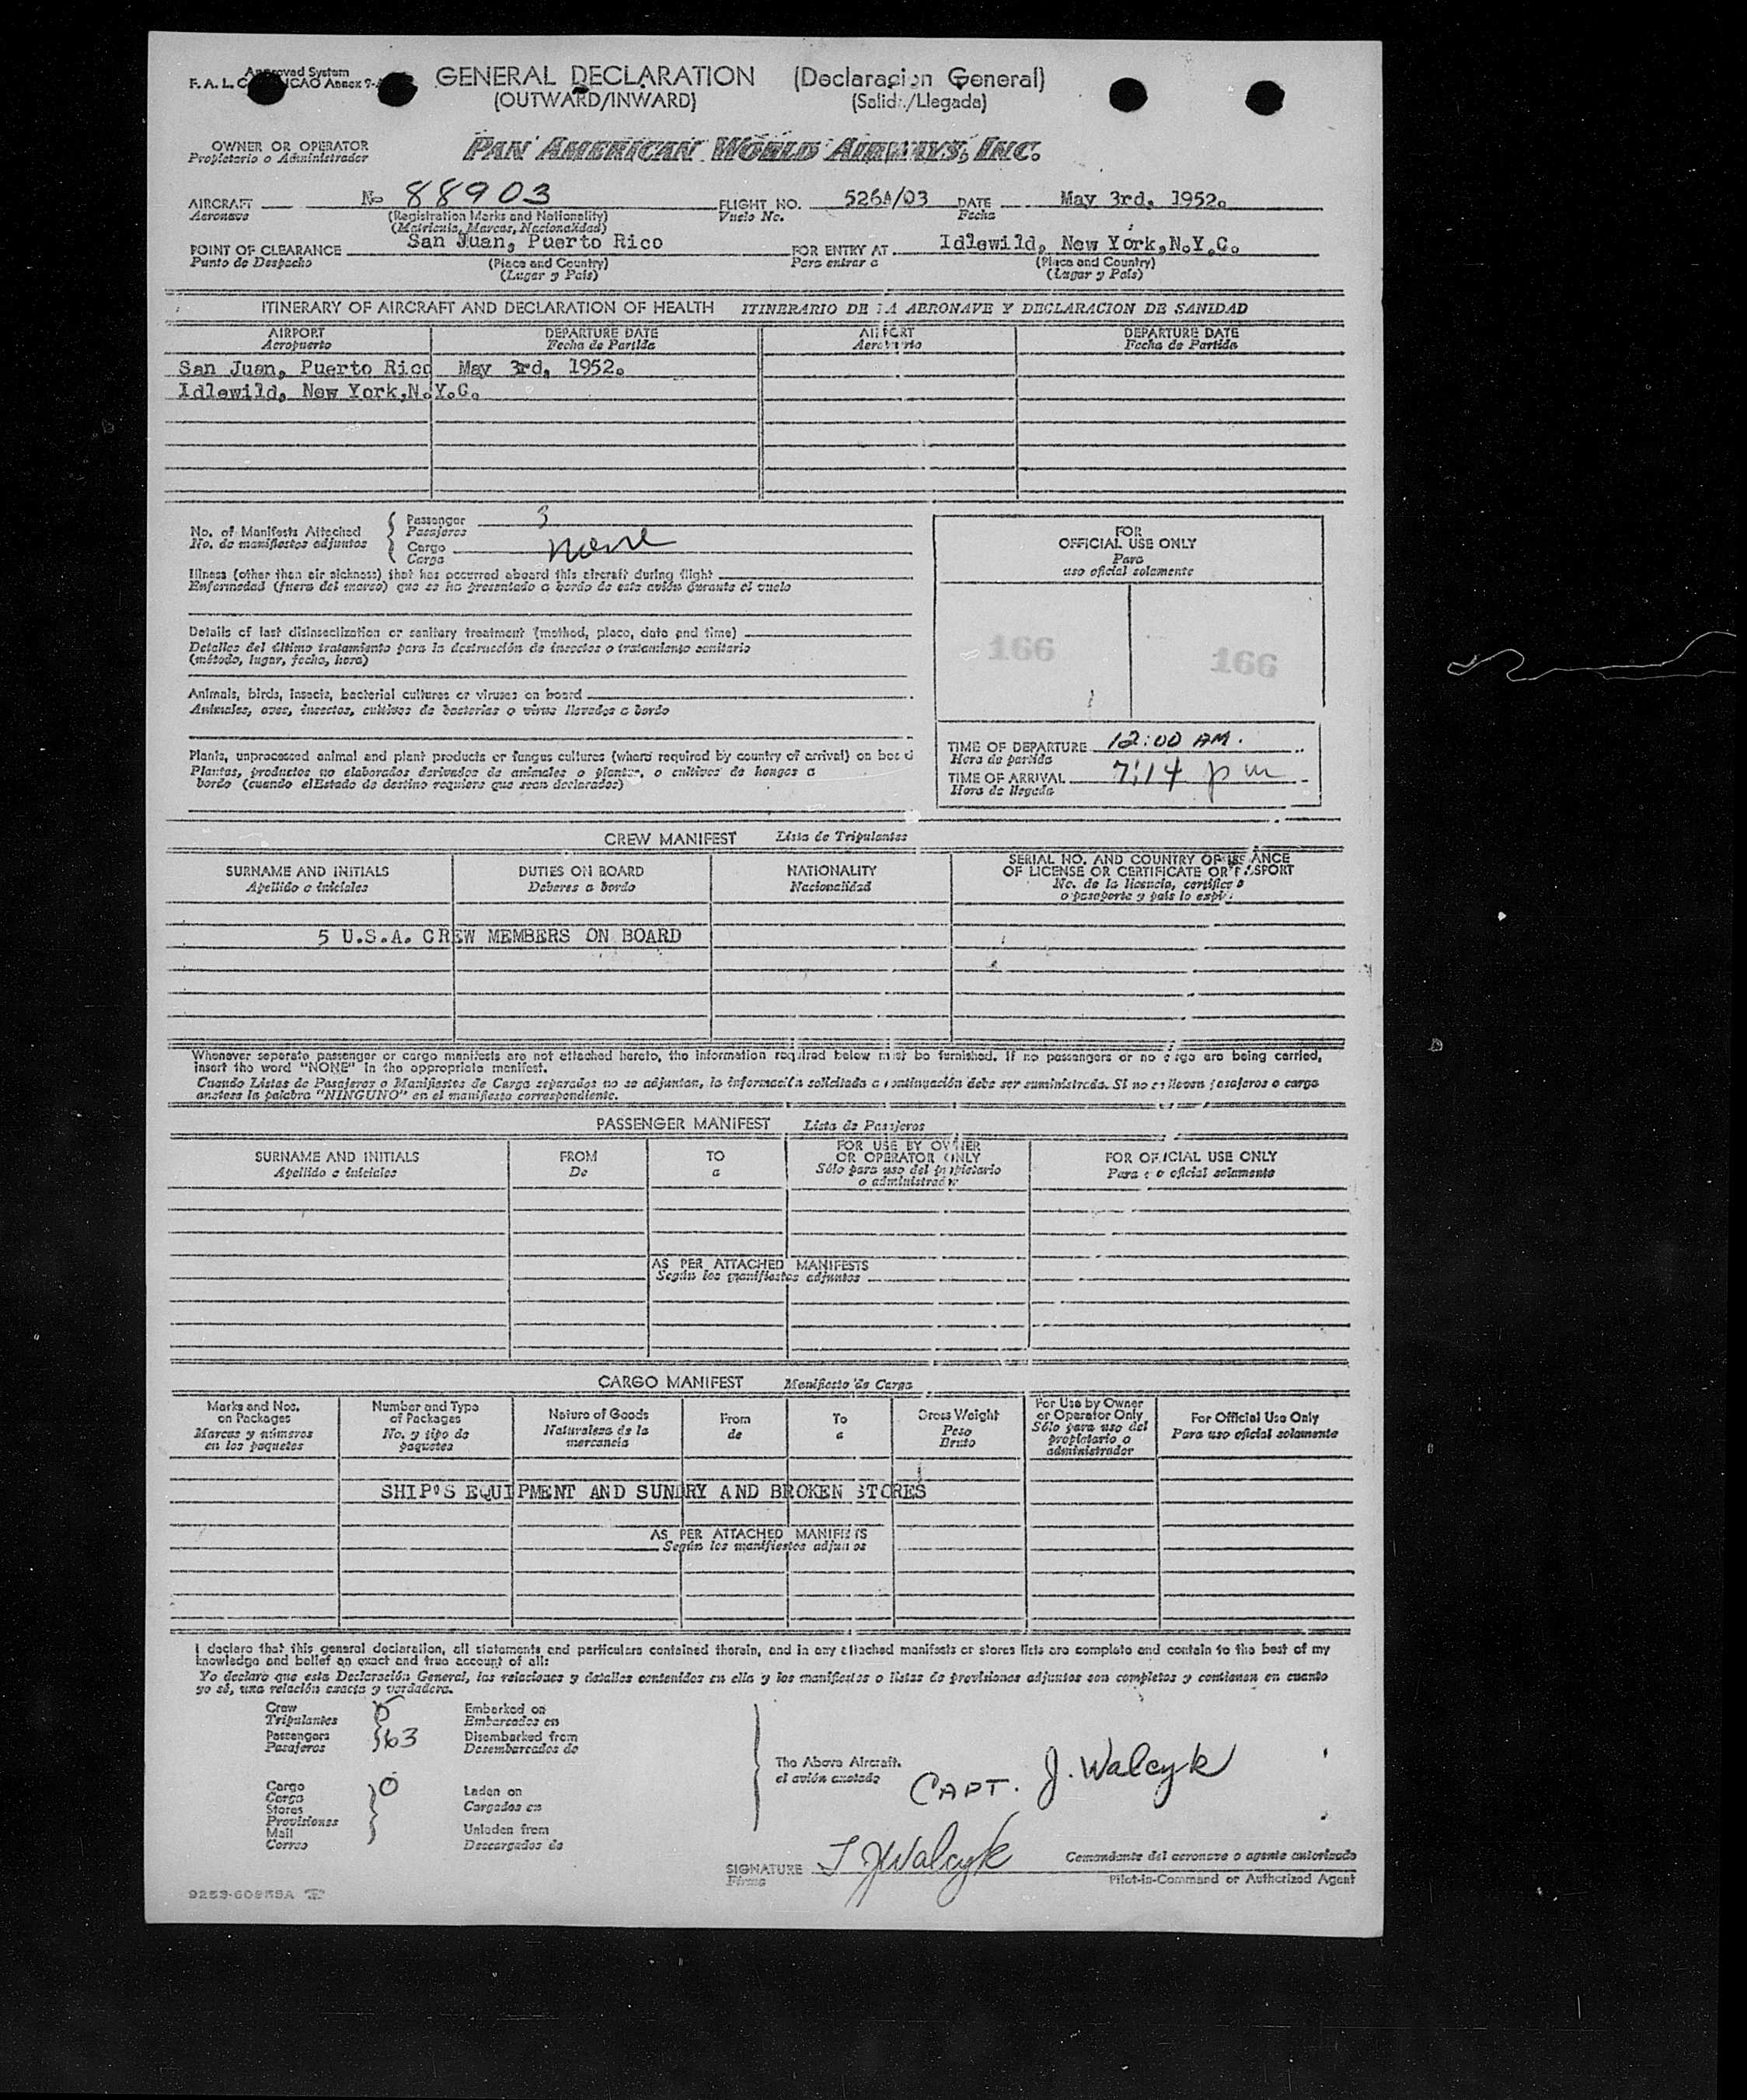 Approved System
F. A. L. C ICAO Annex 9-
GENERAL DECLARATION (Declaracion General)
(OUTWARD/INWARD) (Salida/Llegada)
OWNER OR OPERATOR
Propietario o Administrador
PAN AMERICAN WORLD AIRWAYS, INC.
AIRCRAFT No 88903 FLIGHT NO. 526A/03 DATE May 3rd, 1952.
Aeronave (Registration Marks and Nationality) Vuelo No. Fecha
(Matricula, Marcas, Nacionalidad)
POINT OF CLEARANCE San Juan, Puerto Rico FOR ENTRY AT Idlewild, New York,N.Y.C.
Punto de Despacho (Place and Country) Para entrar a (Place and Country)
(Lugar y País) (Lugar y País)
ITINERARY OF AIRCRAFT AND DECLARATION OF HEALTH ITINERARIO DE LA AERONAVE Y DECLARACION DE SANIDAD
AIRPORT DEPARTURE DATE AIRPORT DEPARTURE DATE
Aeropuerto Fecha de Partida Aeropuerto Fecha de Partida
San Juan, Puerto Rico May 3rd, 1952.
Idlewild, New York,N.Y.C.
No. of Manifests Attached
No. de manifiestos adjuntos
Passenger 3
Pasajeros
Cargo none
Carga
Illness (other than air sickness) that has occurred aboard this aircraft during flight
Enfermedad (fuera del mareo) que se ha presentado a bordo de este avión durante el vuelo
Details of last disinsectization or sanitary treatment (method, place, date and time)
Detalles del último tratamiento para la destrucción de insectos o tratamiento sanitario
(método, lugar, fecha, hora)
Animals, birds, insects, bacterial cultures or viruses on board
Animales, aves, insectos, cultivos de bacterias o virus llevados a bordo
Plants, unprocessed animal and plant products or fungus cultures (where required by country of arrival) on board
Plantas, productos no elaborados derivados de animales o plantas, o cultivos de hongos a
bordo (cuando el Estado de destino requiere que sean declarados)
FOR
OFFICIAL USE ONLY
Para
uso oficial solamente
166 166
TIME OF DEPARTURE 12:00 AM.
Hora de partida
TIME OF ARRIVAL 7:14 pm
Hora de llegada
CREW MANIFEST Lista de Tripulantes
SURNAME AND INITIALS DUTIES ON BOARD NATIONALITY SERIAL NO. AND COUNTRY OF ISSUANCE
OF LICENSE OR CERTIFICATE OR PASSPORT
Apellido e iniciales Deberes a bordo Nacionalidad No. de la licencia, certifica
o pasaporte y país lo expi
5 U.S.A. CREW MEMBERS ON BOARD
Whenever seperate passenger or cargo manifests are not attached hereto, the information required below must be furnished. If no passengers or no cargo are being carried,
insert the word "NONE" in the appropriate manifest.
Cuando Listas de Pasajeros o Manifiestos de Carga separados no se adjuntan, la información solicitada a continuación debe ser suministrada. Si no se llevan pasajeros o carga
anotese la palabra "NINGUNO" en el manifiesto correspondiente.
PASSENGER MANIFEST Lista de Pasajeros
SURNAME AND INITIALS FROM TO FOR USE BY OWNER FOR OFFICIAL USE ONLY
OR OPERATOR ONLY
Apellido e iniciales De a Sólo para uso del propietario Para uso oficial solamente
o administrador
AS PER ATTACHED MANIFESTS
Según los manifiestos adjuntos
CARGO MANIFEST Manifiesto de Carga
Marks and Nos. Number and Type Nature of Goods From To Gross Weight For Use by Owner For Official Use Only
on Packages of Packages Naturaleza de la de a Peso or Operator Only Para uso oficial solamente
Marcas y números No. y tipo de mercancia Bruto Sólo para uso del
en los paquetes paquetes propietario o
administrador
SHIP'S EQUIPMENT AND SUNDRY AND BROKEN STORES
AS PER ATTACHED MANIFESTS
Según los manifiestos adjuntos
I declare that this general declaration, all statements and particulars contained therein, and in any attached manifests or stores lists are complete and contain to the best of my
knowledge and belief an exact and true account of all:
Yo declaro que esta Declaración General, las relaciones y detalles contenidos en ella y los manifiestos o listas de provisiones adjuntos son completos y contienen en cuanto
yo sé, una relación exacta y verdadera.
Crew 5 Embarked on
Tripulantes Embarcados en
Passengers 63 Disembarked from
Pasajeros Desembarcados de
Cargo 0 Laden on
Carga Cargados en
Stores
Provisiones
Mail Unladen from
Correo Descargados de
The Above Aircraft.
el avión anotado
CAPT. J. Walcyk
SIGNATURE J Walcyk
Firma
Comandante del aeronave o agente autorizado
Pilot-in-Command or Authorized Agent